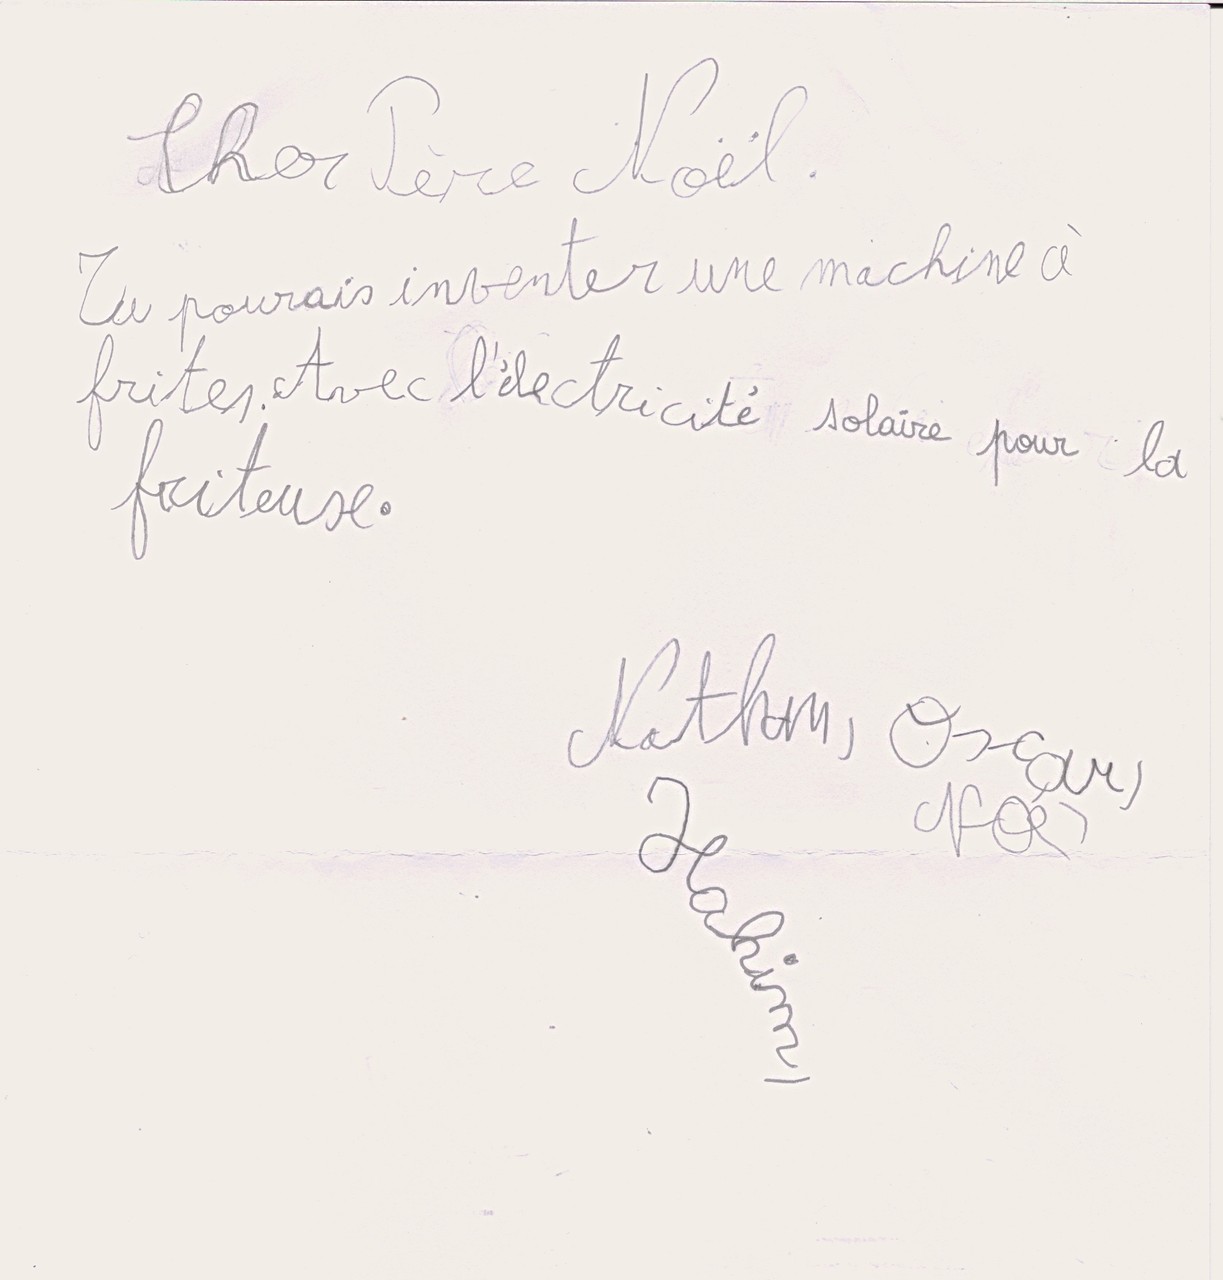 Cher Père Noël.
Tu pourais inventer une machine à
frites. Avec l'électricité solaire pour la
friteuse.
Nathan, Oscar,
Noé,
Hakim,